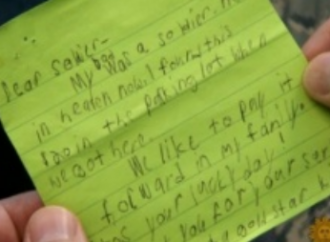 Dear soldier-
My Dad was a soldier. He's
in heaven now. I found this
$20 in the parking lot when
we got here.
We like to pay it
forward in my family.
your lucky day!
you for your ser
a gold star k